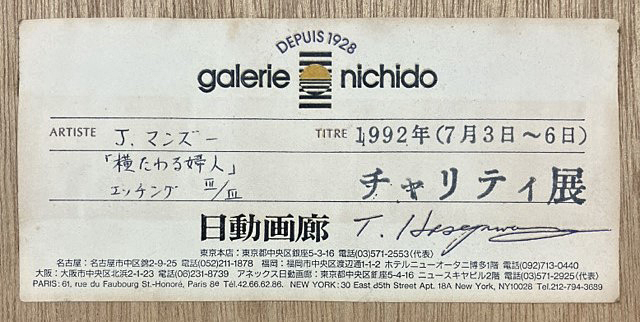 DEPUIS 1928
galerie nichido
ARTISTE J. マンズー TITRE 1992年(7月3日～6日)
「横たわる婦人」
エッチング Ⅲ/Ⅲ チャリティ展
日動画廊 T. Hasegawa
東京本店：東京都中央区銀座5-3-16 電話(03)571-2553(代表)
名古屋：名古屋市中区錦2-9-25 電話(052)211-1878 福岡：福岡市中央区渡辺通1-1-2 ホテルニューオータニ博多1階 電話(092)713-0440
大阪：大阪市中央区北浜2-1-23 電話(06)231-8739 アネックス日動画廊：東京都中央区銀座5-4-16 ニュースキヤビル2階 電話(03)571-2925(代表)
PARIS: 61, rue du Faubourg St.-Honoré, Paris 8e Tél.42.66.62.86. NEW YORK: 30 East d5th Street Apt. 18A New York, NY10028 Tel.212-794-3689